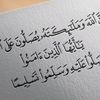 ٱللَّهَ وَمَلَٰٓئِكَتَهُۥ يُصَلُّونَ عَلَى
يَٰٓأَيُّهَا ٱلَّذِينَ ءَامَنُوا۟
صَلُّوا۟ عَلَيْهِ وَسَلِّمُوا۟ تَسْلِيمًا